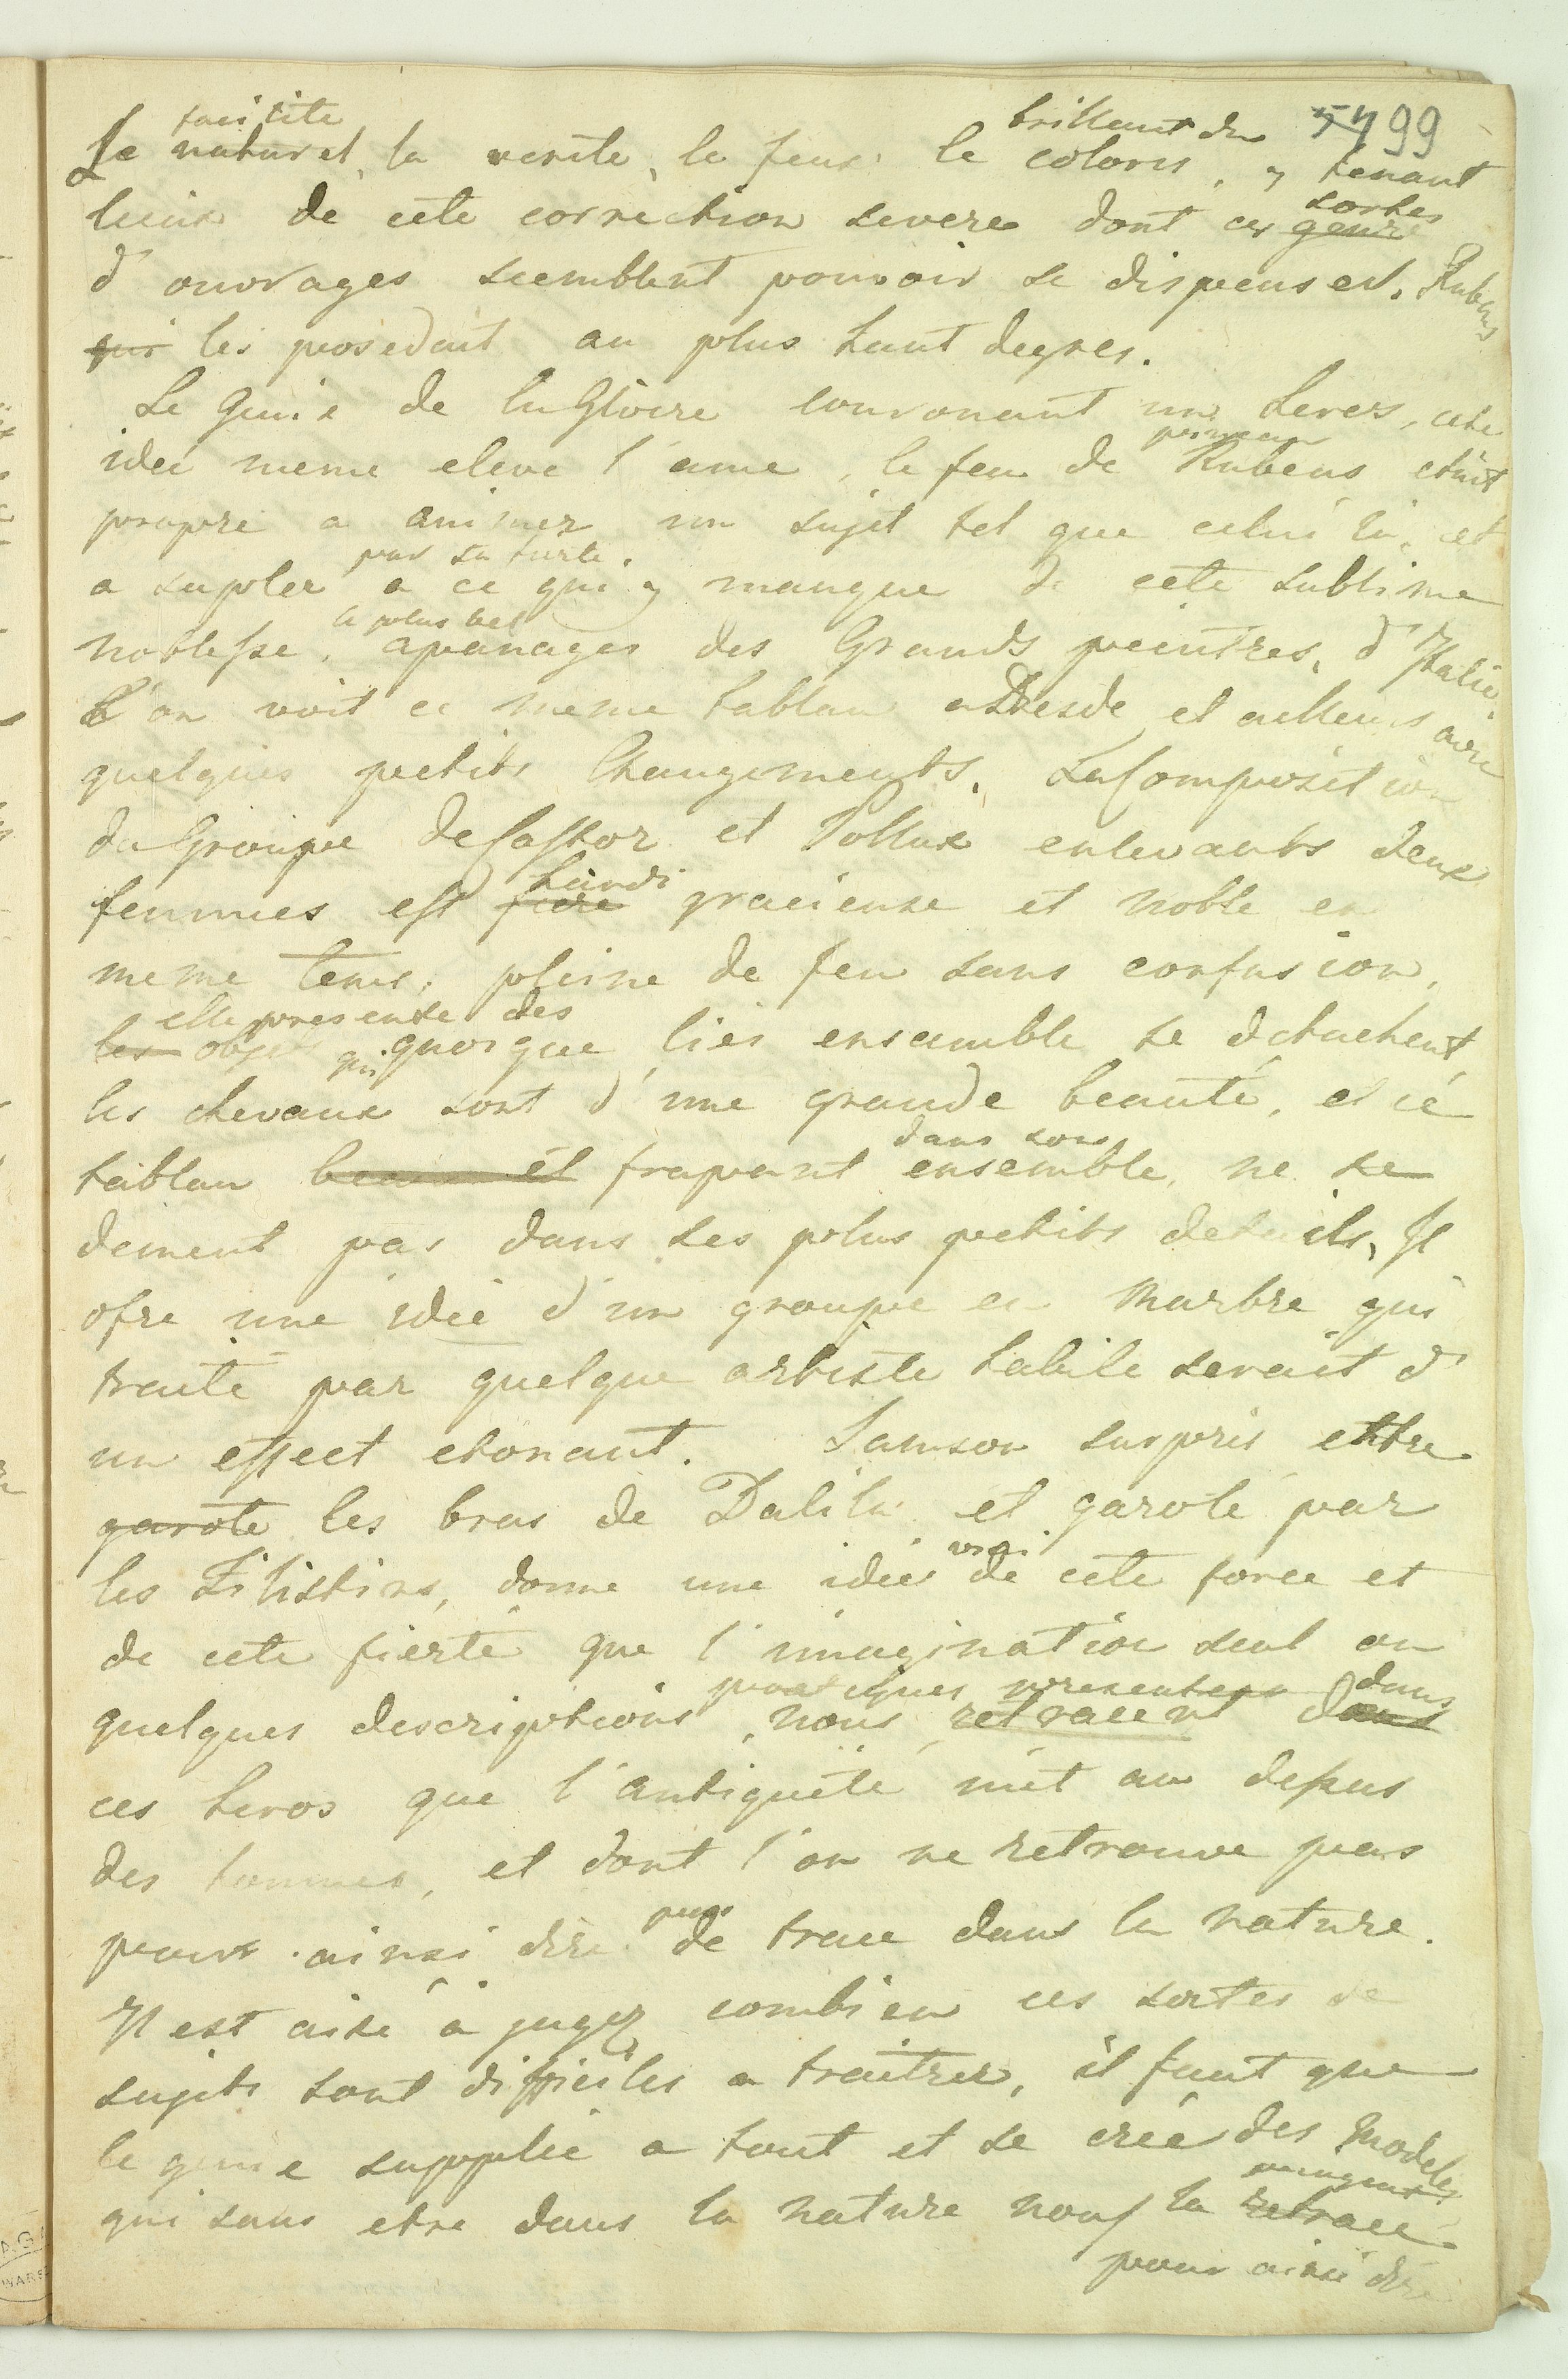 facilite brillant du 57 99
Le naturel, la verite, le feux le coloris, y tenant
lieux de cete correction severe dont ces genre sortes
d'ouvrages scemblent pouvoir se dispenser. Rubens
qui les posedait au plus haut degres.
Le Genie de la Gloire couronant un Heros, cete
idee meme eleve l'ame, le feu de Rubens etait
propre a animer un sujet tel que celui la, et
par sa
a supleer a ce qui y manque de cete sublime
le plus bel
noblesse, apanages des Grands peintres, d'Italie
L'on voit ce meme tablau a Dresde et ailleurs avec
quelques petits Changements. La Composition
du Groupe de Castor et Pollux enlevants deux
hardi
femmes est fiere gracieuse et noble en
meme tems, pleine de feu sans confusion,
elle presente des
les objets qui quoique lies ensemble se detachent,
les chevaux sont d'une grande beauté, et cé
dans son
tablau beau et frapant ensemble, ne se
dement pas dans ses plus petits details, Il
ofre une idée d'un groupe en Marbre qui
traité par quelque artiste habile serait d'
un effect etonant. Samson surpris entre
garoté les bras de Dalila et garoté par
vrai
les Filistins, donne une idée de cete force et
de cete fierté que l'imagination seul ou
poetiques presentent dans
quelques descriptions, nous retracent dans
ces heros que l'antiquité mit au dessus
des hommes, et dont l'on ne retrouve pas
pour ainsi dire de trace dans la nature.
Il est aisé à juger combien ces sortes de
sujets sont difficiles a traitrer, il faut que
le genie supplée a tout et se crée des Modeles
qui sans etre dans la nature nous la retracé
pour ainsi dire